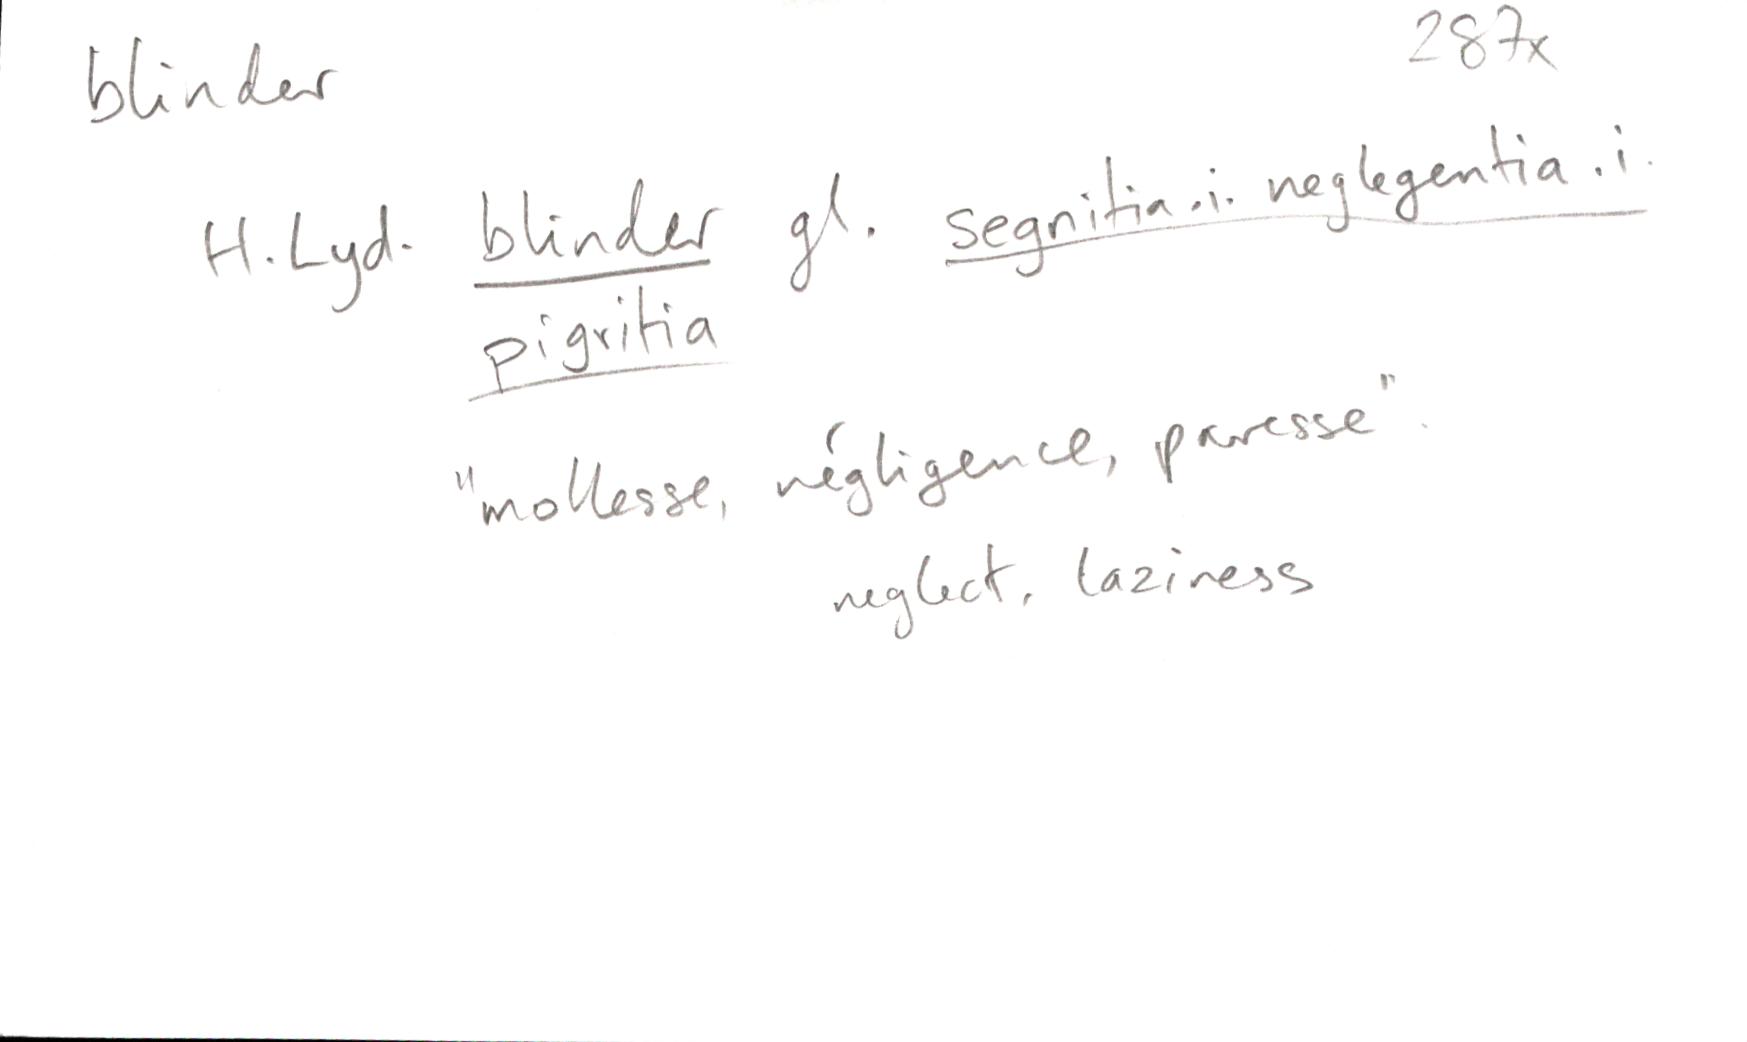 287x
blinder
H.Lyd. blinder gl. segnitia .i. neglegentia .i.
pigritia
"mollesse, négligence, paresse".
neglect, laziness